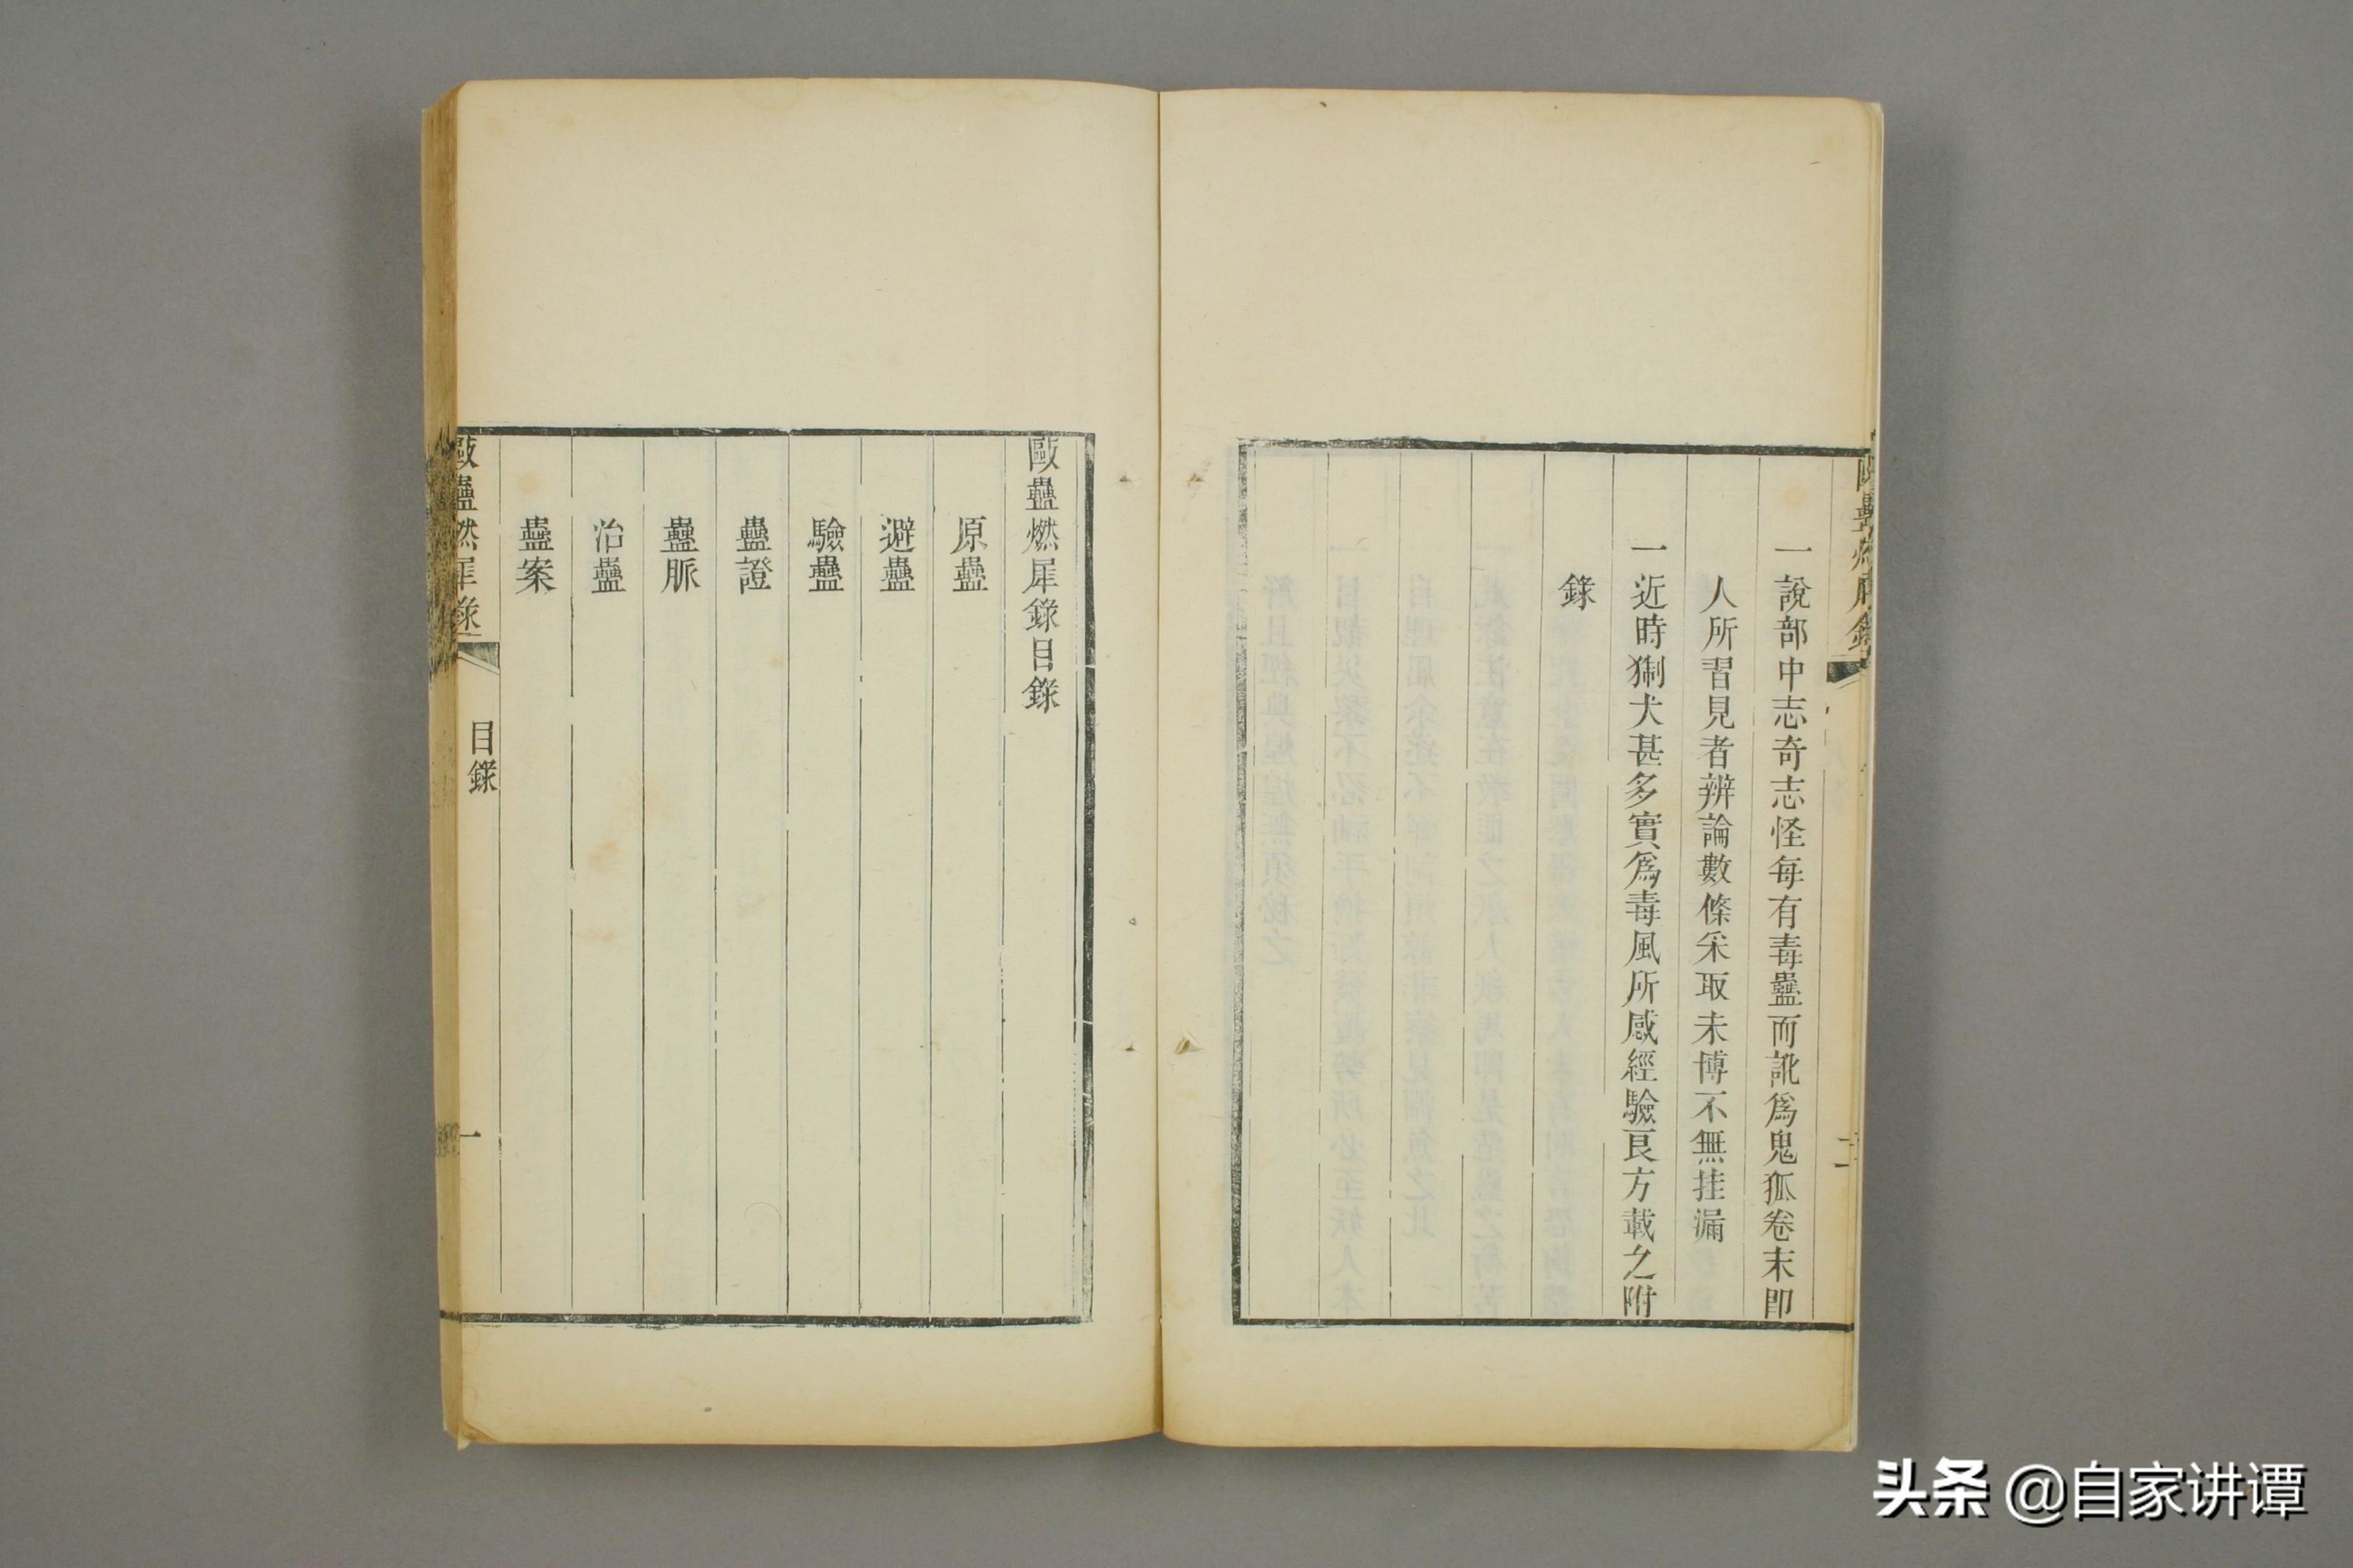 一說部中志奇志怪每有毒蠱而訛爲鬼狐卷末卽
人所習見者辨論數條采取未博不無挂漏
一近時猘犬甚多實爲毒風所感經驗良方載之附
錄
敺蠱燃犀錄目錄
原蠱
避蠱
驗蠱
蠱證
蠱脈
治蠱
蠱案
敺蠱燃犀錄
目錄
一
头条 @自家讲谭